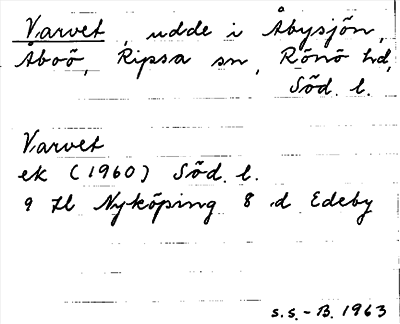 Varvet, udde i Åbysjön,
Åboö, Ripsa sn, Rönö hd,
Söd. l.
Varvet
ek (1960) Söd. l.
9 H Nyköping 8 d Edeby
S.S.-B. 1963